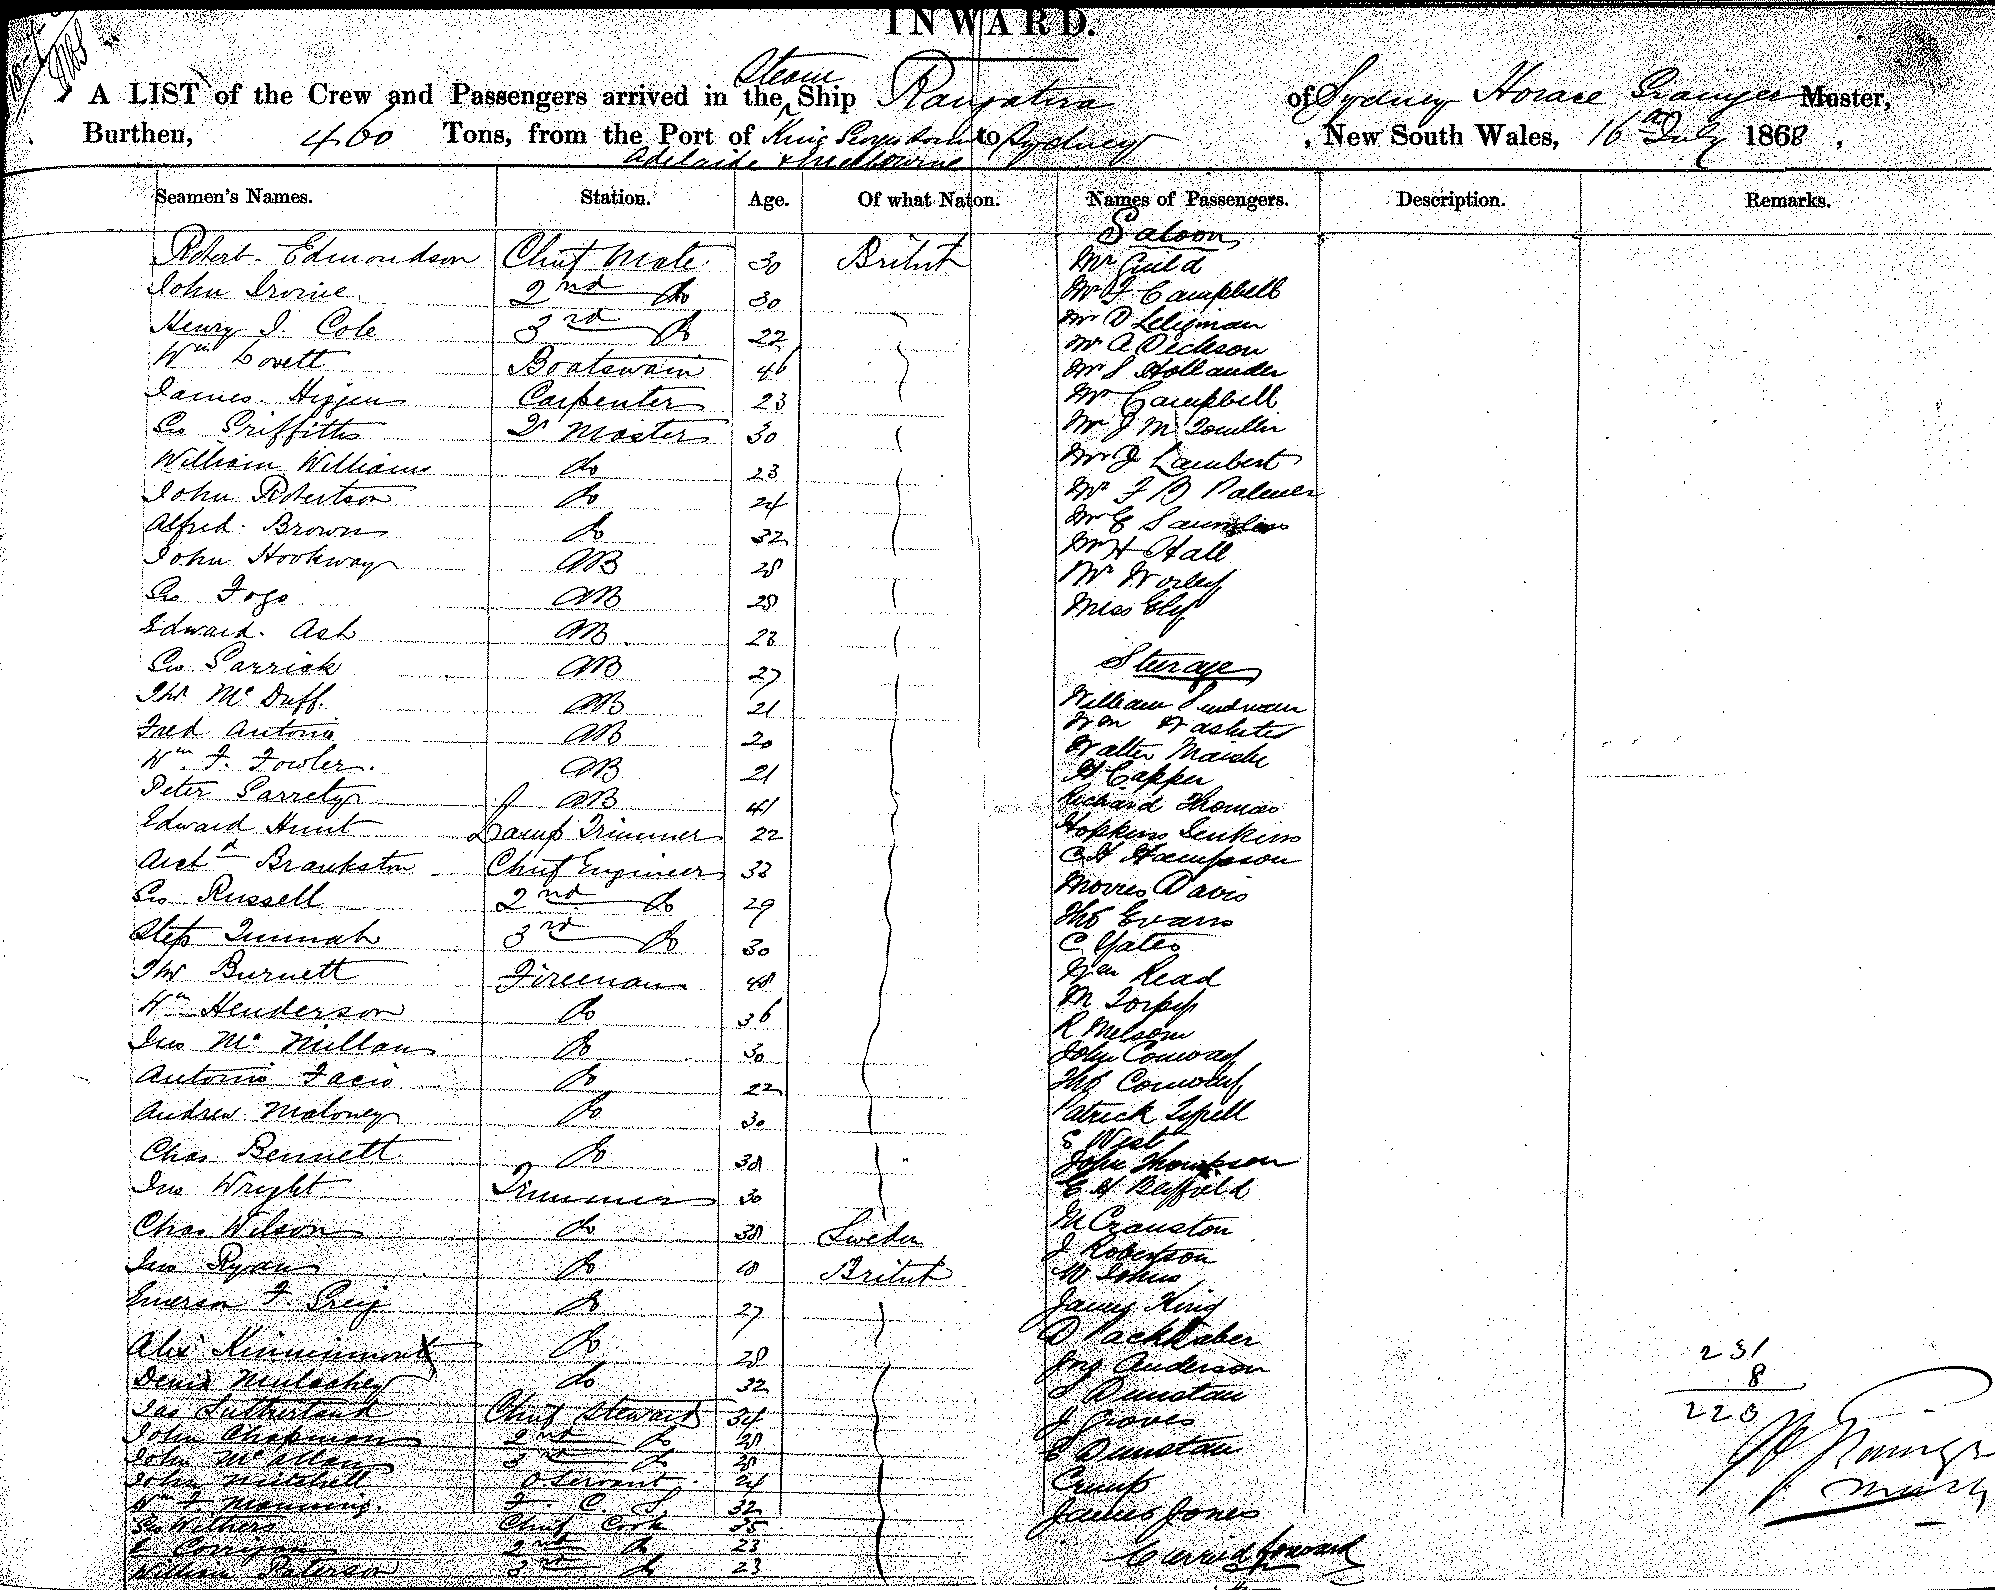 INWARD.
A LIST of the Crew and Passengers arrived in the Steam Ship Rangatira of Sydney Horace Grainger Master,
Burthen, 460 Tons, from the Port of King Georges Sound to Sydney, New South Wales, 16th July 1868.
Adelaide & Melbourne
Seamen's Names. Station. Age. Of what Naton. Names of Passengers. Description. Remarks.
Saloon
Robert Edmondson Chief Mate 30 British Mr Guild
John Irvine 2nd do 30 Mr F Campbell
Henry J. Cole 3rd do 22 Mr D Seligman
Wm Lovett Boatswain 46 Mr A Dickson
James Higgins Carpenter 23 Mr S Hollander
Geo Griffiths Qr Master 30 Mr Campbell
William Williams do 23 Mr J M
John Robertson do 24 Mr J Lambert
Alfred Brown do 32 Mr F B Palmer
John Hookway AB 28 Mr E Saunders
Geo Fogo AB 28 Mr H Hall
Edward Ash AB 23 Mr Worley
Geo Garrick AB 27 Miss Ely
Steerage
Thos McDuff AB 21 William
Fred Antonio AB 20 Wm
Wm F. Fowler AB 21 Walter
Peter Garrety AB 41 H Capper
Edward Hunt Lamp Trimmer 22 Richard Thomas
Archd Brankston Chief Engineer 33 Hopkins Jenkins
Geo Russell 2nd do 29 C H Hampson
Step 3rd do 30 Morres Davis
Thos Burnett Fireman 48 Thos Evans
Wm Henderson do 36 C Yates
Jno McMillan do 30 Wm Read
Antonio Facio do 22 M Torpy
Andrew Maloney do 30 R Melsom
Chas Bennett do 38 John Conway
Jno Wright Trimmer 30 Thos
Chas Wilson do 38 Sweden Patrick Tyrell
Jno Ryan do British E West
Emerson F. Greig do 27 John Thompson
Alex Kinninmont do 28 E H
Denis do 32 M Cranston
Jas Sutherland Chief Steward 34 J Robertson
John Chapman 2nd do 28 W Johns
John McAllan 3rd do 28 James King
John Mitchell Servant 24 D
Wm F Manning F. C. S 32 Jno Anderson
Geo Withers Chief Cook 35 S Dunstan
E Corrigan 2nd do 23 J Groves
William Paterson 3rd do 23 E Dunstan
Crump
James Jones
Carried forward
231
8
223
S H Grainger
Master